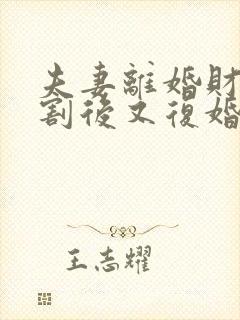 夫妻離婚財
割後又復婚
王志耀